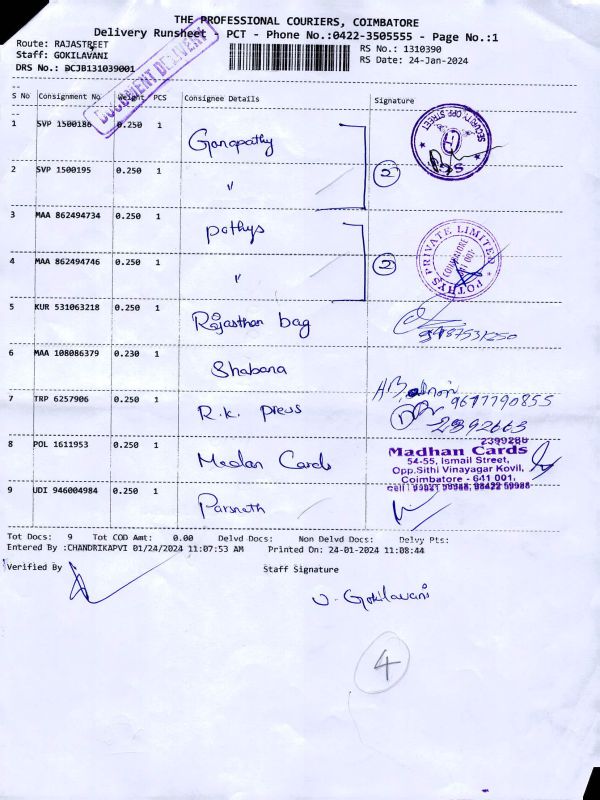 THE PROFESSIONAL COURIERS, COIMBATORE
Delivery Runsheet - PCT - Phone No.:0422-3505555 - Page No.:1
Route: RAJASTREET
Staff: GOKILAVANI
DRS No.: DCJB131039001
RS No.: 1310390
RS Date: 24-Jan-2024
DOCUMENT DELIVERY
S No Consignment No Weight PCS Consignee Details Signature
1 SVP 1500186 0.250 1 Ganapathy
SECURITY OPP. STREET
2 SVP 1500195 0.250 1 〃 2
3 MAA 862494734 0.250 1 pothys
POTHYS PRIVATE LIMITED
COIMBATORE
641 001
4 MAA 862494746 0.250 1 〃 2
5 KUR 531063218 0.250 1 Rajasthan bag
6 MAA 108086379 0.230 1 Shabana
7 TRP 6257906 0.250 1 R.k. press
9677790855
2392663
8 POL 1611953 0.250 1 Madan Cards
2399286
Madhan Cards
54-55, Ismail Street,
Opp.Sithi Vinayagar Kovil,
Coimbatore - 641 001.
9 UDI 946004984 0.250 1 Parsnath
Tot Docs: 9 Tot COD Amt: 0.00 Delvd Docs: Non Delvd Docs: Delvy Pts:
Entered By :CHANDRIKAPVI 01/24/2024 11:07:53 AM Printed On: 24-01-2024 11:08:44
Verified By Staff Signature
V. Gokilavani
4